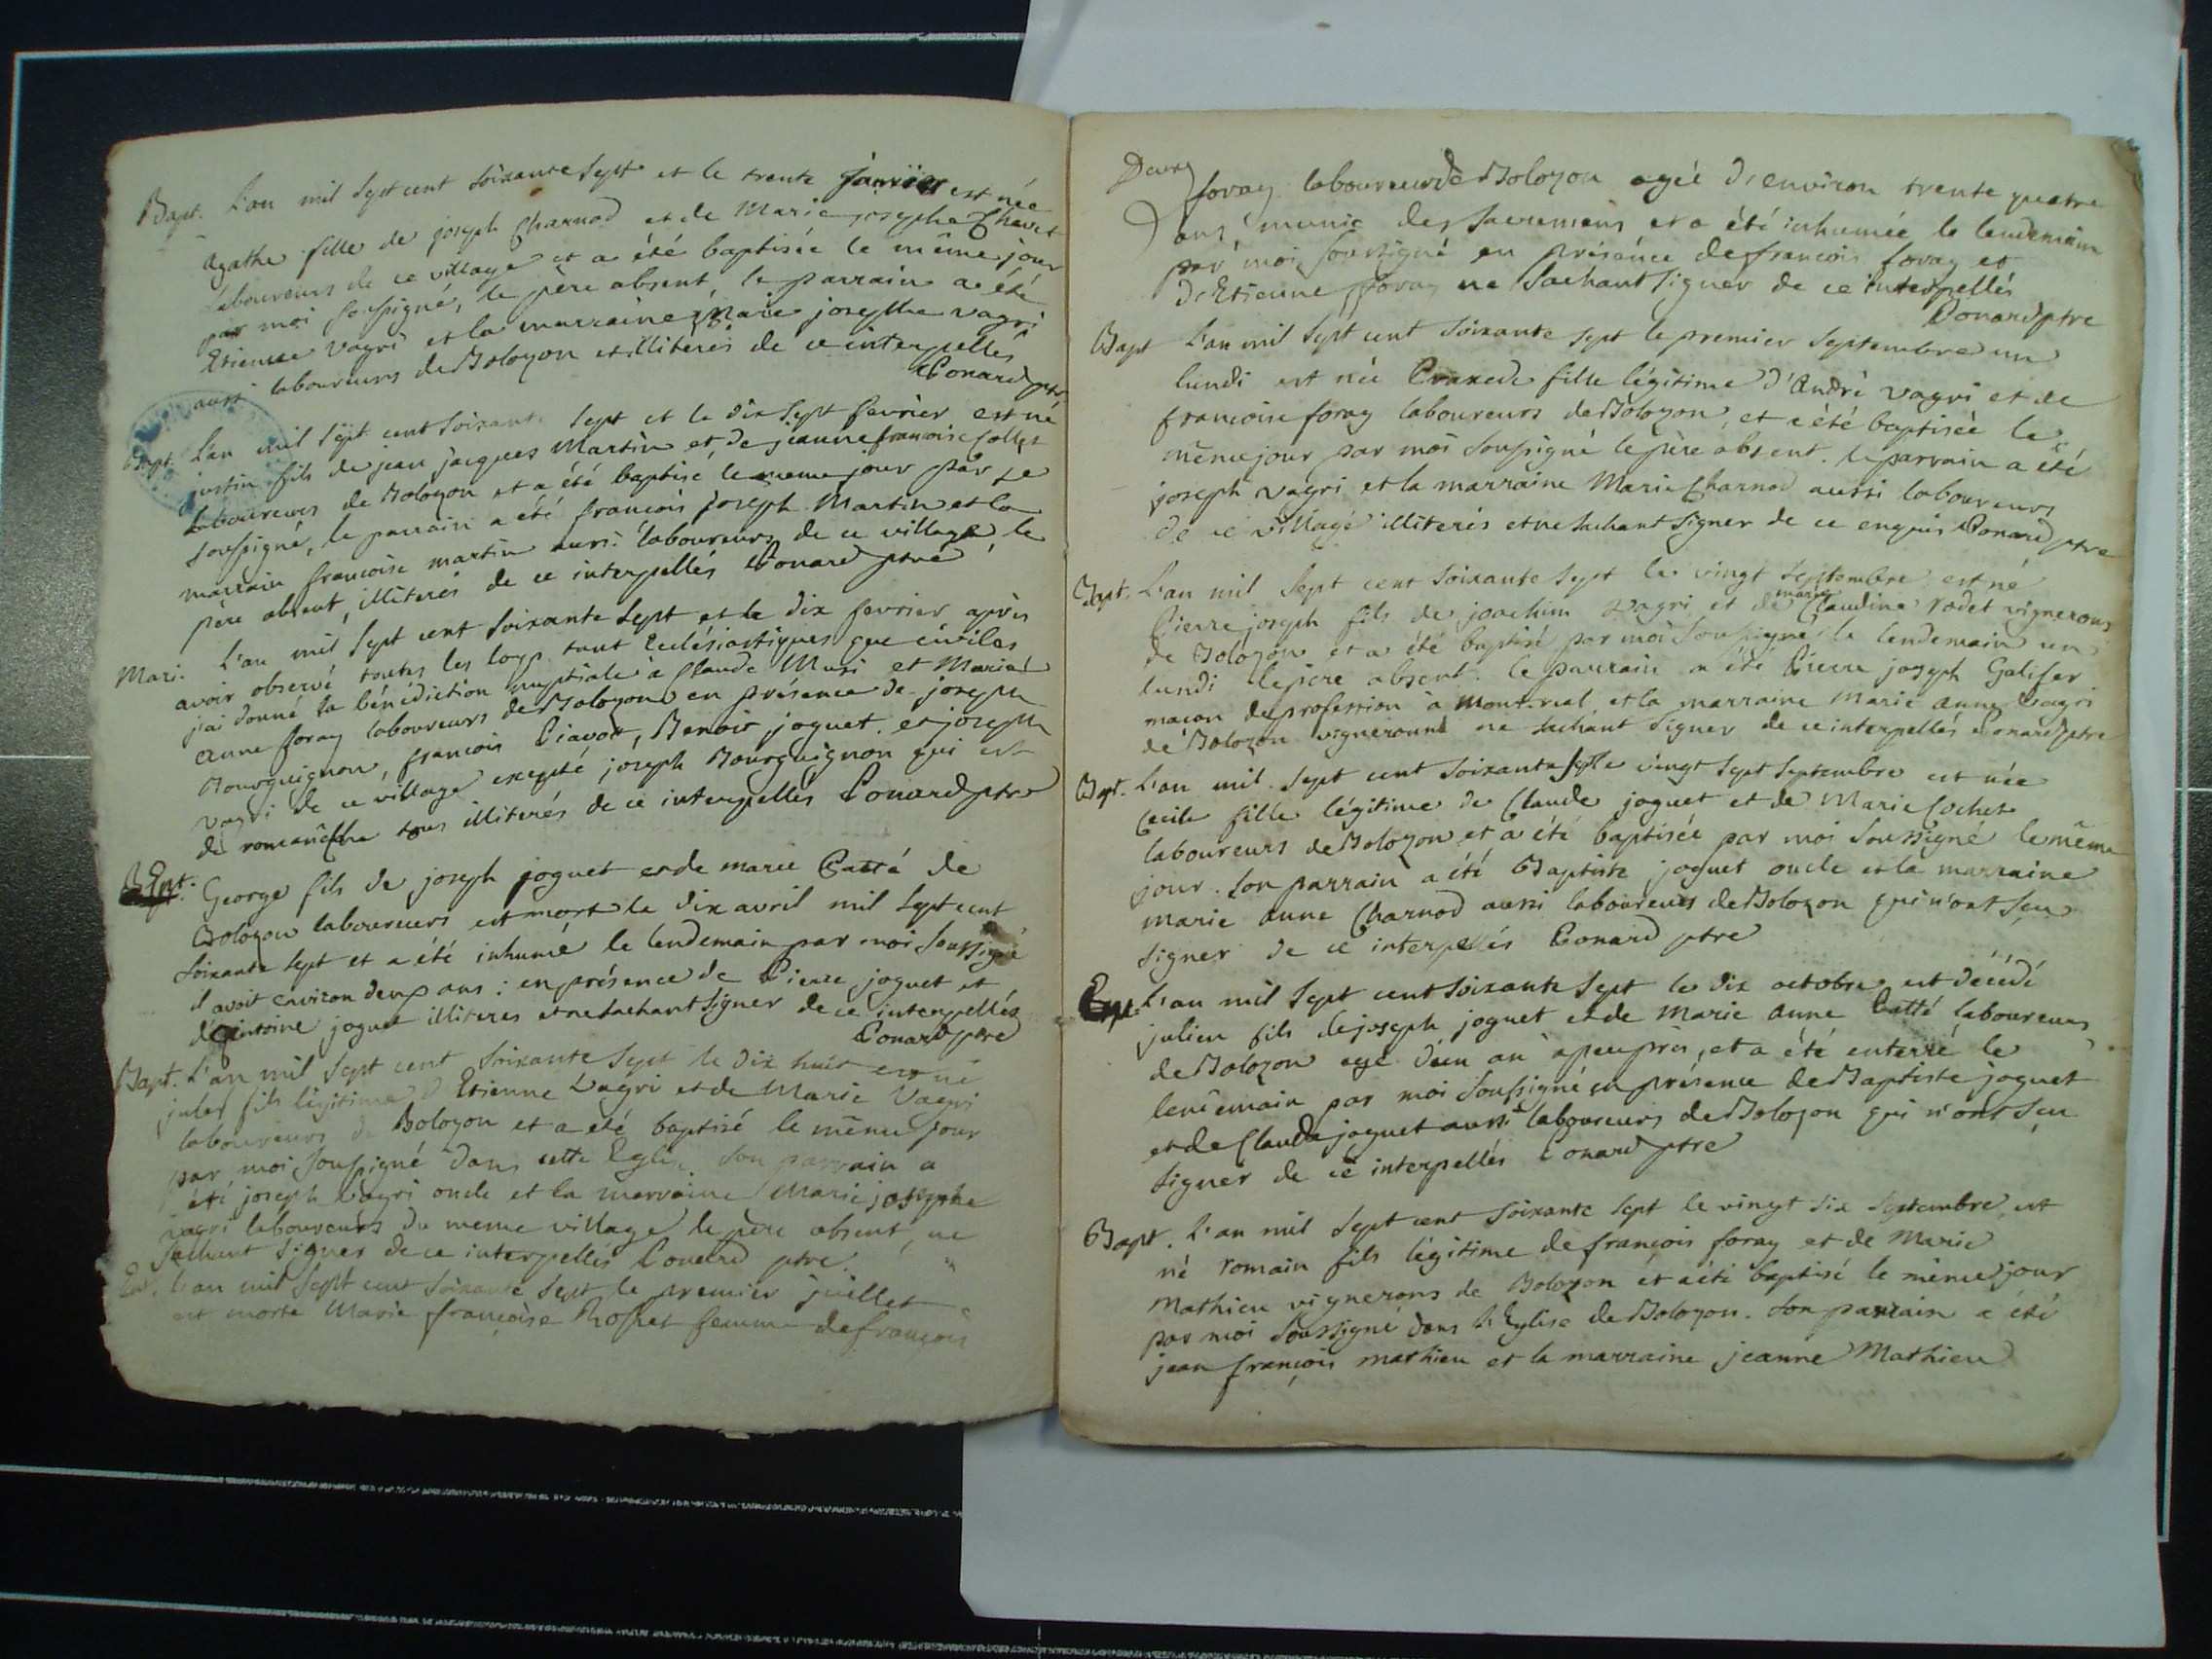 Bapt. L'an mil sept cent soixante sept et le trente janvier est née
Agathe fille de joseph Charnod et de Marie josephe Chavet
laboureurs de ce village et a été baptisée le même jour
par moi soussigné, le père absent, le parrain a été
Etienne Vagri et la marraine Marie josephe vagri
aussi laboureurs de Bolozon et illiterés de ce interpellés
Conard ptre
Bapt. L'an mil sept cent soixante sept et le dix sept fevrier est né
justin fils de jean jacques Martin et de jeanne francoise Collet
laboureurs de Bolozon et a été baptisé le meme jour par le
soussigné, le parrain a été francois joseph Martin et la
marrain francoise martin aussi laboureurs de ce village le
père absent, illiterés de ce interpellés Conard ptre
Mari. L'an mil sept cent soixante sept et le dix fevrier après
avoir observé toutes les loys tant Ecclésiastiques que civiles
j'ai donné la bénédiction nuptiale à Claude Musi et Marie
anne foray laboureurs de Bolozon en présence de joseph
Bourguignon, francois Piavoz, Benoit joguet et joseph
vagri de ce village excepté joseph Bourguignon qui est
de romanêche tous illiterés de ce interpellés Conard ptre
Ent. George fils de joseph joguet et de marie Catté de
Bolozon laboureurs est mort le dix avril mil sept cent
soixante sept et a été inhumé le lendemain par moi soussigné
il avoit environ deux ans : en présence de Pierre joguet et
d'Antoine joguet illiteres et ne sachant signer de ce interpellés
Conard ptre
Bapt. L'an mil sept cent soixante sept le dix huit est né
jules fils légitime d'Etienne Vagri et de Marie Vagri
laboureurs de Bolozon et a été baptisé le même jour
par moi soussigné dans cette Eglise son parrain a
été joseph Vagri oncle et la marraine Marie josephe
vagri laboureurs du meme village le père absent, ne
sachant signer de ce interpellés Conard ptre.
Ent. L'an mil sept cent soixante sept le premier juillet
est morte Marie françoise Rosset femme de françois
foray laboureur de Bolozon agée d'environ trente quatre
ans munie des sacremens et a été inhumée le lendemain
par moi soussigné en présence de francois foray et
d'Etienne foray ne sachant signer de ce interpellés
Conard ptre
Bapt L'an mil sept cent soixante sept le premier septembre un
lundi est née Praxede fille légitime d'André vagri et de
francoise foray laboureurs de Bolozon, et a été baptisée le
même jour par moi soussigné le père absent. le parrain a été
joseph vagri et la marraine Marie Charnod aussi laboureurs
de ce village illiterés et ne sachant signer de ce enquis Conard ptre
Bapt. L'an mil sept cent soixante sept le vingt septembre est né
Pierre joseph fils de joachim Vagri et de marie Claudine rodet vignerons
de Bolozon et a été baptisé par moi soussigné le lendemain un
lundi le père absent. le parrain a été Pierre joseph Galifer
maçon de profession à Montreal et la marraine Marie anne Vagri
de Bolozon vigneronne ne sachant signer de ce interpellés Conard ptre
Bapt. L'an mil sept cent soixante sept le vingt sept septembre est née
Cecile fille légitime de Claude joguet et de Marie Cochet
laboureurs de Bolozon et a été baptisée par moi soussigné le même
jour. son parrain a été Baptiste joguet oncle et la marraine
marie anne Charnod aussi laboureurs de Bolozon qui n'ont sçu
signer de ce interpellés Conard ptre
Ent. L'an mil sept cent soixante sept le dix octobre est décédé
julien fils de joseph joguet et de Marie anne Catté laboureurs
de Bolozon agé d'un an apeuprès, et a été enterré le
lendemain par moi soussigné en présence de Baptiste joguet
et de Claude joguet aussi laboureurs de Bolozon qui n'ont sçu
signer de ce interpellés Conard ptre
Bapt. L'an mil sept cent soixante sept le vingt six septembre est
né romain fils légitime de françois foray et de Marie
Mathieu vignerons de Bolozon et a été baptisé le même jour
par moi soussigné dans l'Eglise de Bolozon. son parrain a été
jean françois mathieu et la marraine jeanne Mathieu